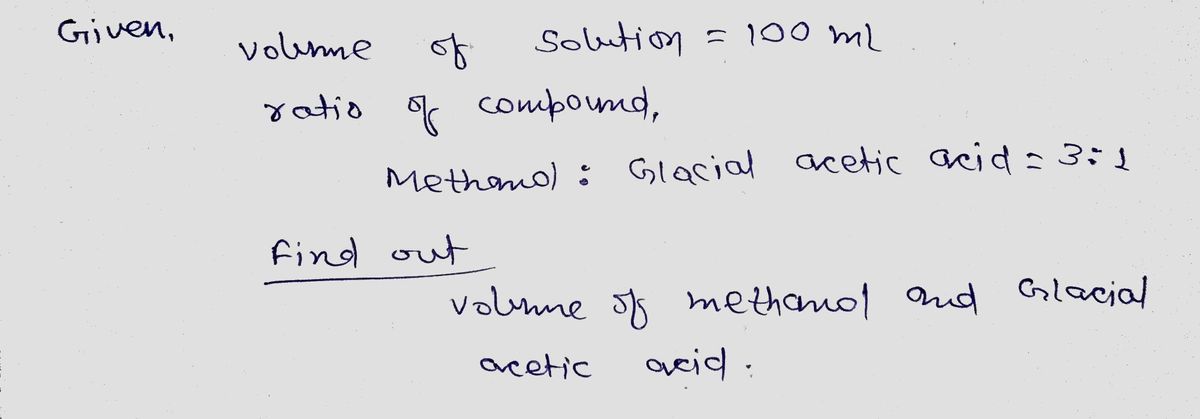 Given,
volume of solution = 100 ml
ratio of compound,
Methanol : Glacial acetic acid = 3:1
find out
volume of methanol and Glacial
acetic acid.